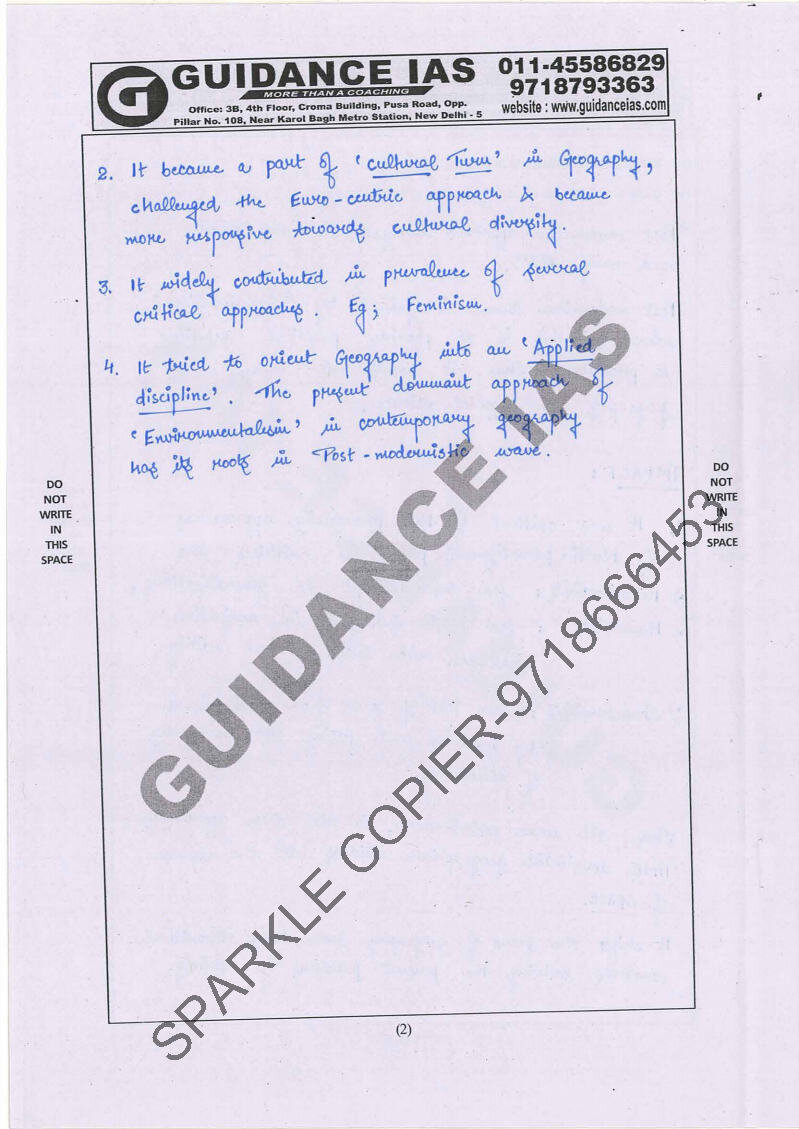 GUIDANCE IAS
MORE THAN A COACHING
Office: 3B, 4th Floor, Croma Building, Pusa Road, Opp.
Pillar No. 108, Near Karol Bagh Metro Station, New Delhi - 5
011-45586829
9718793363
website : www.guidanceias.com
2. It became a part of 'cultural Turn' in Geography,
challenged the Euro-centric approach & became
more responsive towards cultural diversity.
3. It widely contributed in prevalence of several
critical approaches. Eg; Feminism.
4. It tried to orient Geography into an 'Applied
discipline'. The present dominant approach of
'Environmentalism' in contemporary geography
has its roots in Post-modernistic wave.
DO
NOT
WRITE
IN
THIS
SPACE
DO
NOT
WRITE
IN
THIS
SPACE
GUIDANCE IAS
SPARKLE COPIER-9718666453
(2)